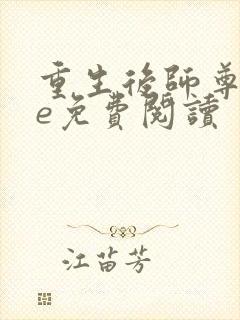 重生後師尊
e免費閱讀
江苗芳